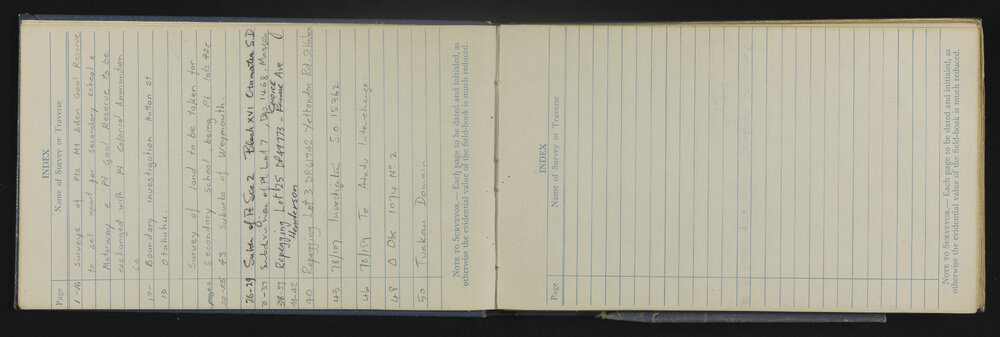 INDEX
Page Name of Survey or Traverse
1-16 Surveys of Pts Mt Eden Goal Reserve
to set apart for secondary school &
Motorway & Pt Goal Reserve to be
exchanged with Pt Colonial Ammunition
Co
17- Boundary Investigation Hutton St
19 Otahuhu.
Survey of land to be taken for
pages Secondary School being Pt lots 42 &
20-25 43 Suburbs of Weymouth
26-29 Subdn of Pt Sec 2 Block XVI Otamatea S.D.
Subdivision of Pt Lot 7, DP 1468, Massey
Repegging Lot 125 DP49773 - Ave
41-42 Henderson
40 Repegging Lot 3 DP 61742 Yattendon Rd. St Heliers
43 78/107 Investigation SO 15362
46 78/159 Te Atatu Interchange.
48 Δ Obs 1074 No 2
50 Tuakau Domain
NOTE TO SURVEYOR.— Each page to be dated and initialed, as
otherwise the evidential value of the field-book is much reduced.
INDEX
Page Name of Survey or Traverse
NOTE TO SURVEYOR.— Each page to be dated and initialed, as
otherwise the evidential value of the field-book is much reduced.